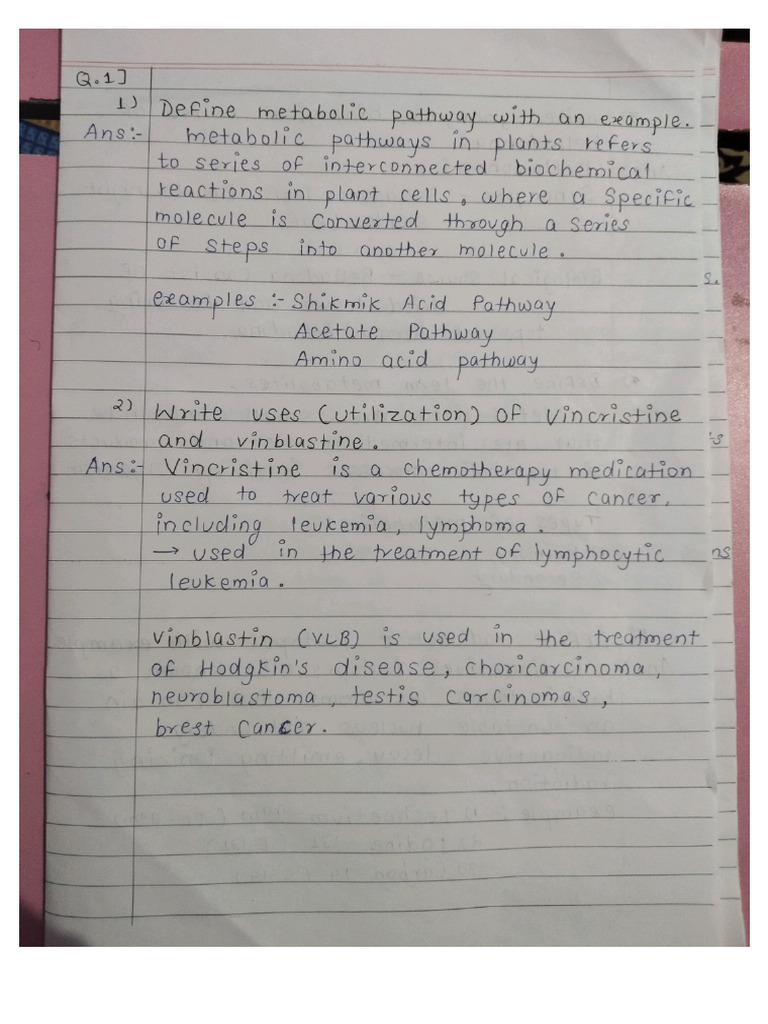 Q.1]
1) Define metabolic pathway with an example.
Ans:- Metabolic pathways in plants refers
to series of interconnected biochemical
reactions in plant cells, where a specific
molecule is converted through a series
of steps into another molecule.
examples :- Shikmik Acid Pathway
Acetate Pathway
Amino acid pathway
2) Write uses (utilization) of vincristine
and vinblastine.
Ans:- Vincristine is a chemotherapy medication
used to treat various types of cancer,
including leukemia, lymphoma.
→ used in the treatment of lymphocytic
leukemia.
Vinblastin (VLB) is used in the treatment
of Hodgkin's disease, choricarcinoma,
neuroblastoma, testis carcinomas,
brest cancer.